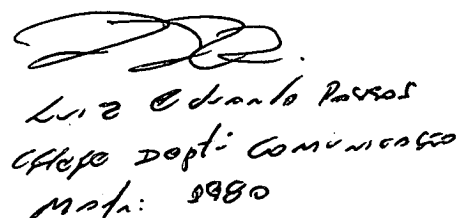 Luiz Eduardo Passos
Chefe Deptº Comunicação
Matr: 1980